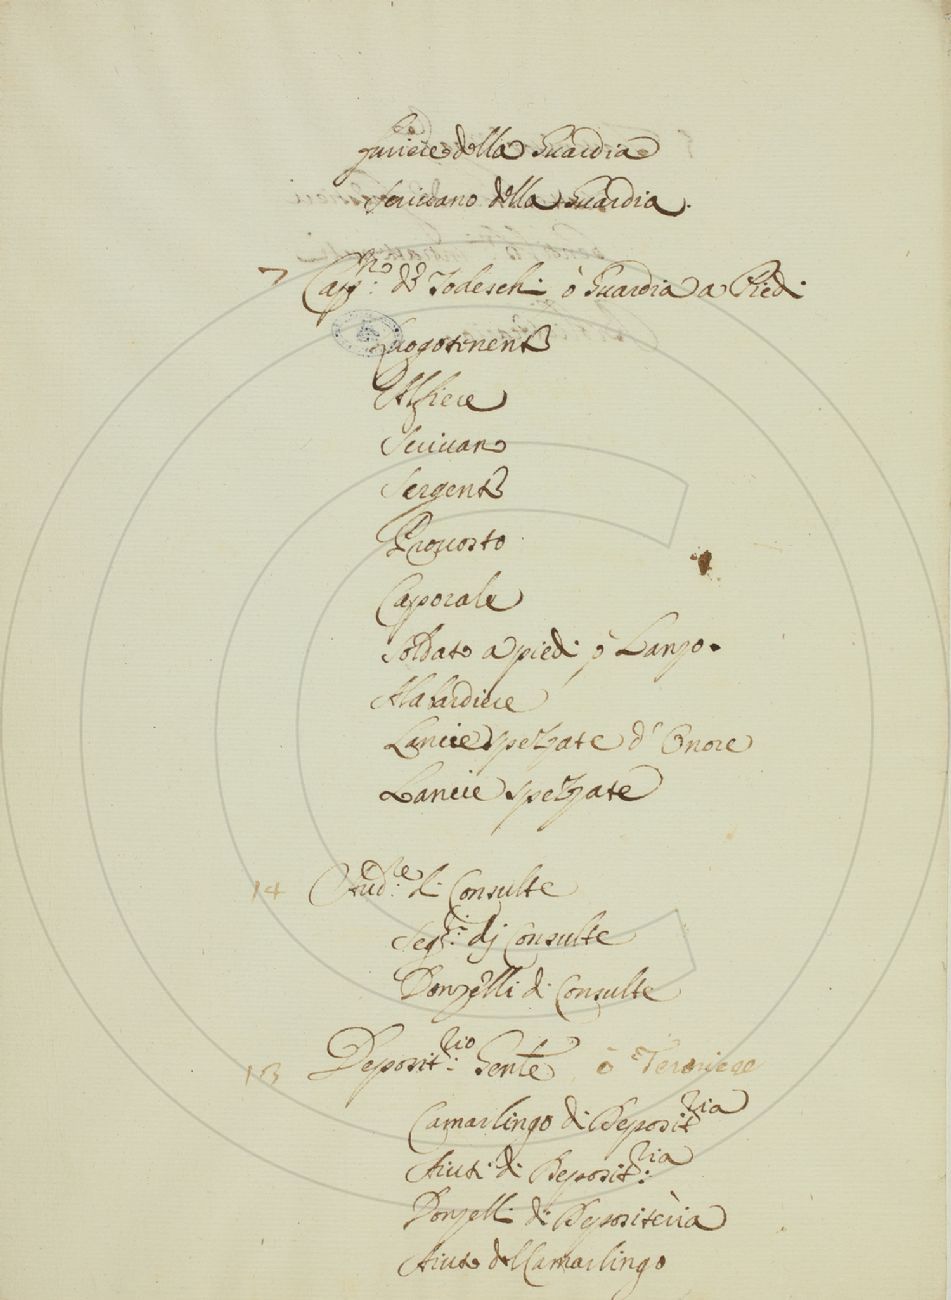 Furiere della Guardia
Scrivano della Guardia.
7 Capp.no de Todeschi ò Guardia a Piedi
Luogotenente
Alfiere
Scrivano
Sergente
Provosto
Caporale
Soldato a piedi ò Lanzo.
Alabardiere
Lancie spezzate d'Onore
Lancie spezzate
14 Aud.re di Consulte
Seg.ri dj Consulte
Donzelli di Consulte
13 Deposit.rio Gente ò
Camarlingo di Deposit.ria
Aiuti di Deposit.ria
Donzelli di Depositeria
Aiuto del Camarlingo